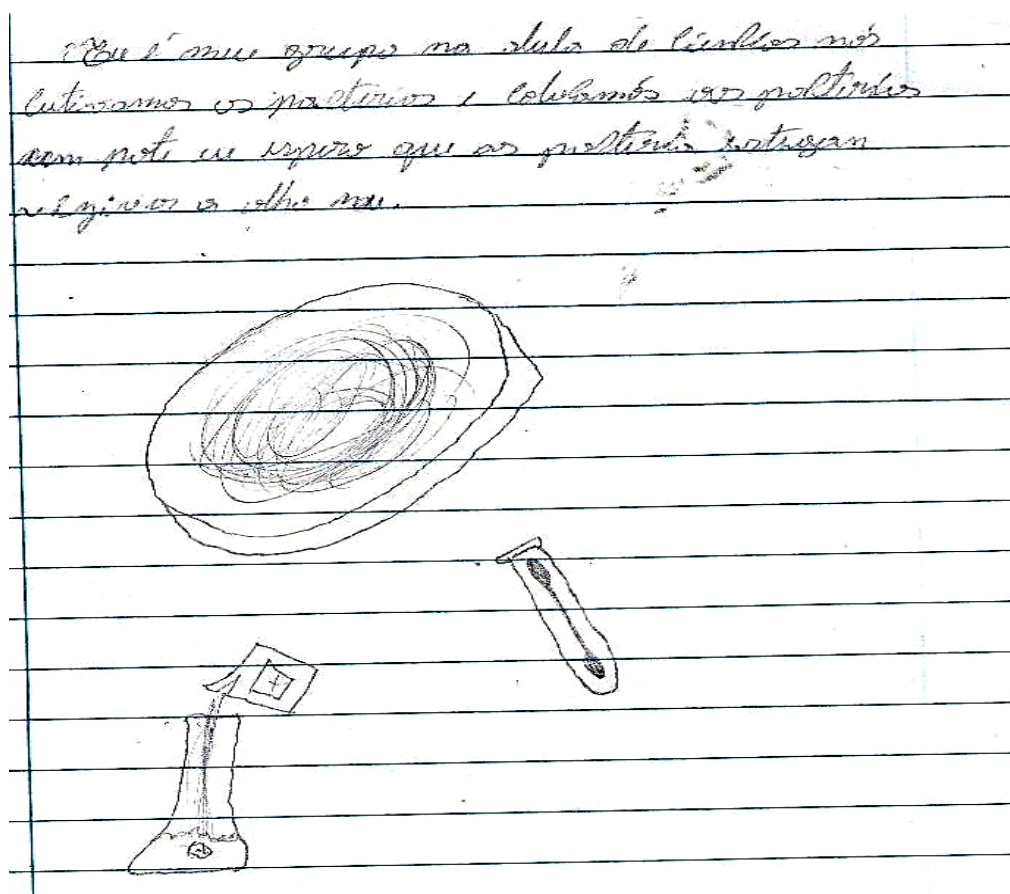 Eu é meu grupo na aula de Ciências nós
cutivamos as pactérias e colocamós as pactérias
num pote eu espero que as pactérias estejam
a olho nu.